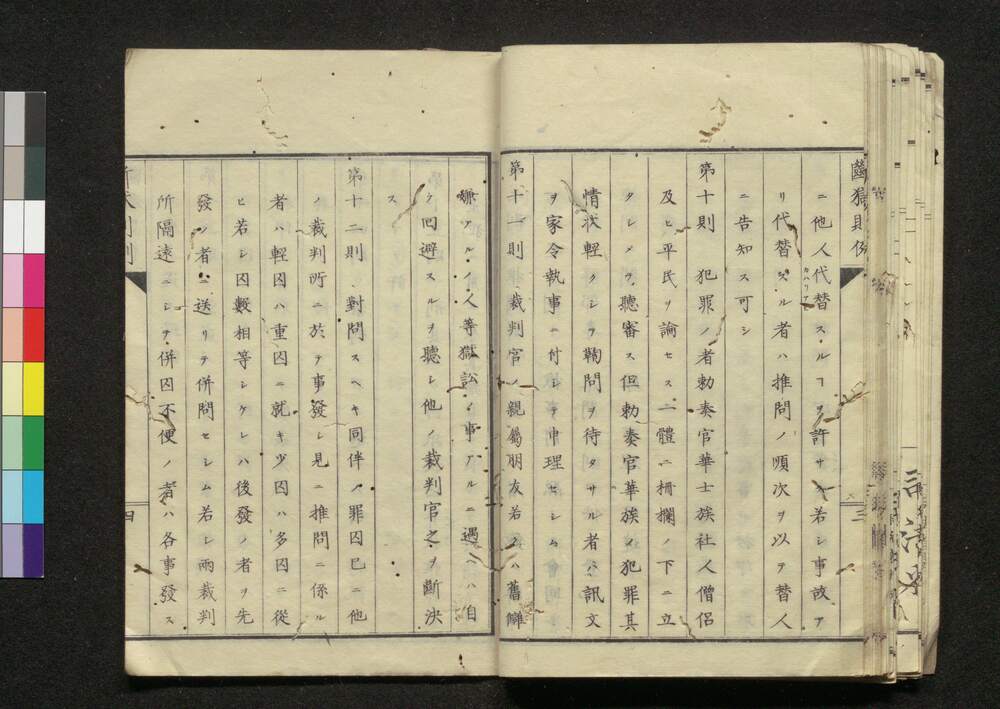 ニ他人代替スルヿヲ許サス若シ事故ア
リ代替スル者ハ推問ノ順次ヲ以テ替人
ニ告知ス可シ
第十則 犯罪ノ者勅奏官華士族社人僧侶
及ヒ平民ヲ論セス一體ニ柵欄ノ下ニ立
タシメテ聽審ス但勅奏官華族ノ犯罪其
情状輕クシテ鞫問ヲ待タサル者ハ訊文
ヲ家令執事ニ付シテ申理セシム
第十一則 裁判官ノ親屬朋友若クハ舊讎
嫌アルノ人等獄訟ノ事アルニ遇ヘハ自
ラ回避スルヲ聽シ他ノ裁判官之ヲ斷決
ス
第十二則 對問スヘキ同伴ノ罪囚已ニ他
ノ裁判所ニ於テ事發シ見ニ推問ニ係ル
者ハ輕囚ハ重囚ニ就キ少囚ハ多囚ニ從
ヒ若シ囚數相等シケレハ後發ノ者ヲ先
發ノ者ニ送リテ併問セシム若シ兩裁判
所隔遠ニシテ併囚不便ノ者ハ各事發ス
四